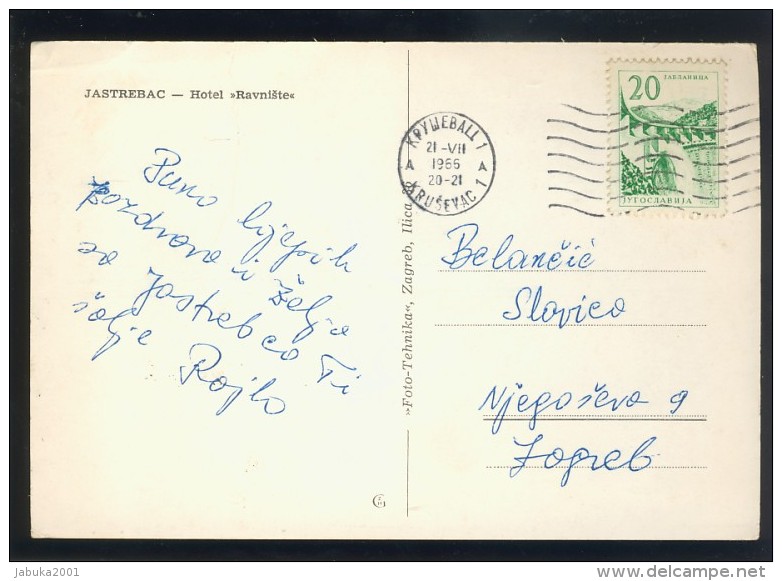 JASTREBAC — Hotel »Ravnište«
Puno lijepih
pozdrava i želja
sa Jastrebca Ti
šalje Rajko
»Foto-Tehnika«, Zagreb, Ilica
КРУШЕВАЦ 1
21-VII
A 1966 A
20-21
KRUŠEVAC 1
20 ЈАБЛАНИЦА
ЈУГОСЛАВИЈА
Belančić
Slavica
Njegoševa 9
Zagreb
jabuka2001
delcampe.net